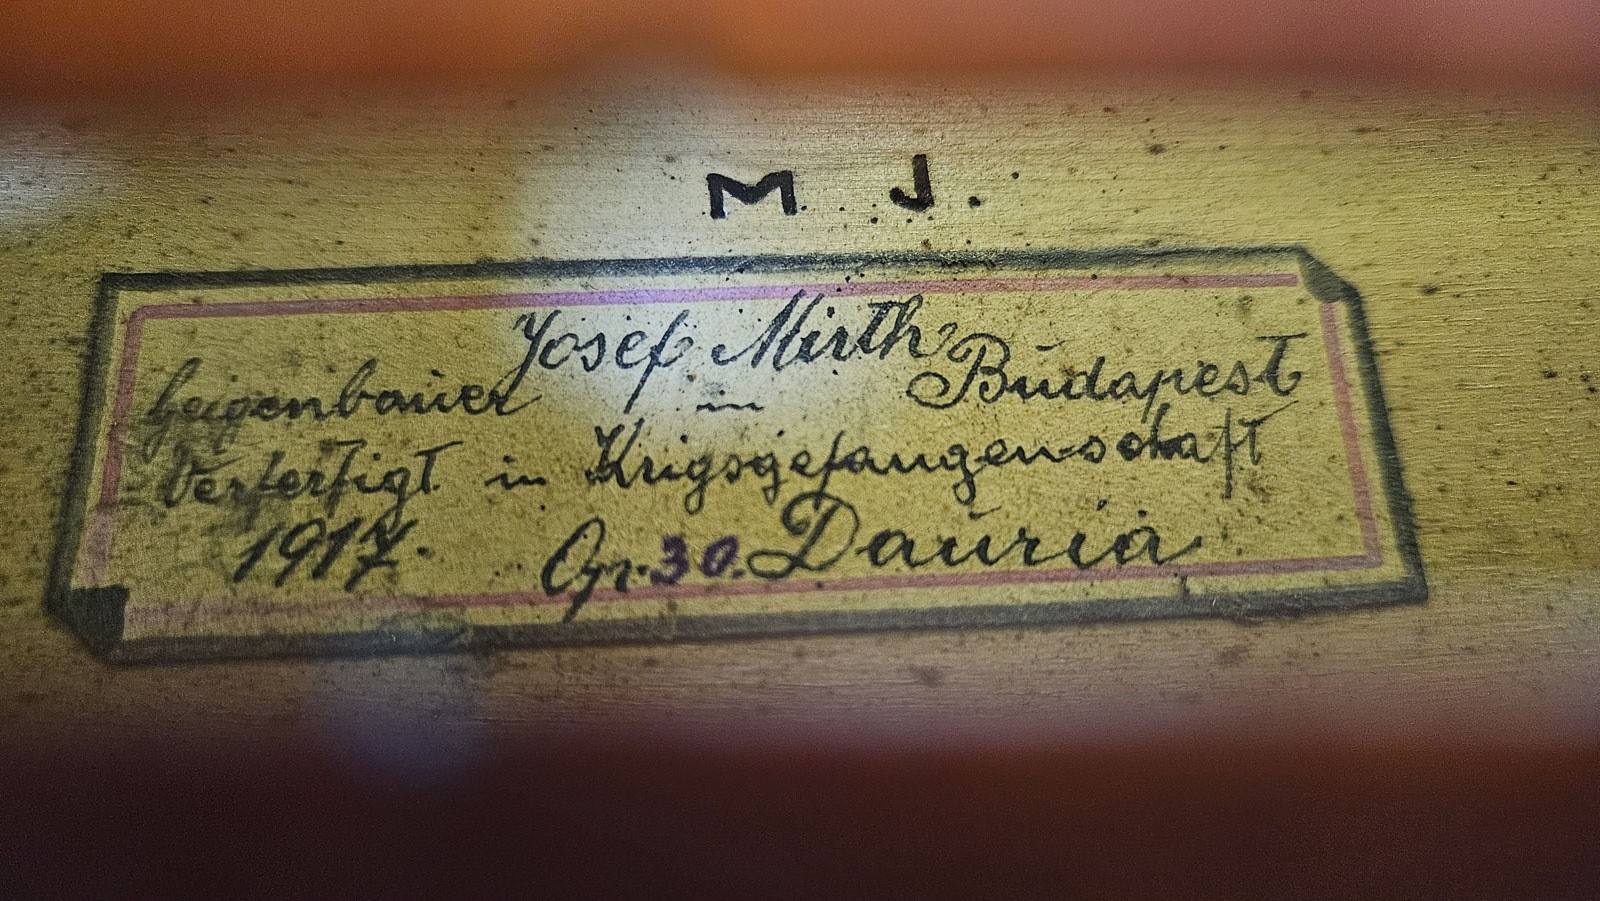 M J.
Josef Mirth
Geigenbauer in Budapest
Verfertigt in Krigsgefangenschaft
1917. Gr. 30. Dauria